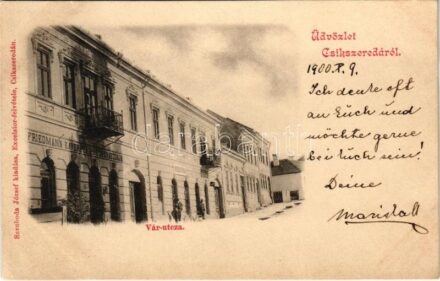 Üdvözlet
Csikszeredáról.
1900. X. 9.
Ich denke oft
an Euch und
möchte gerne
bei Euch sein!
Deine
FRIEDMANN
Vár-utcza.
Szvoboda József kiadása, Excelsior-felvétele, Csikszeredán.